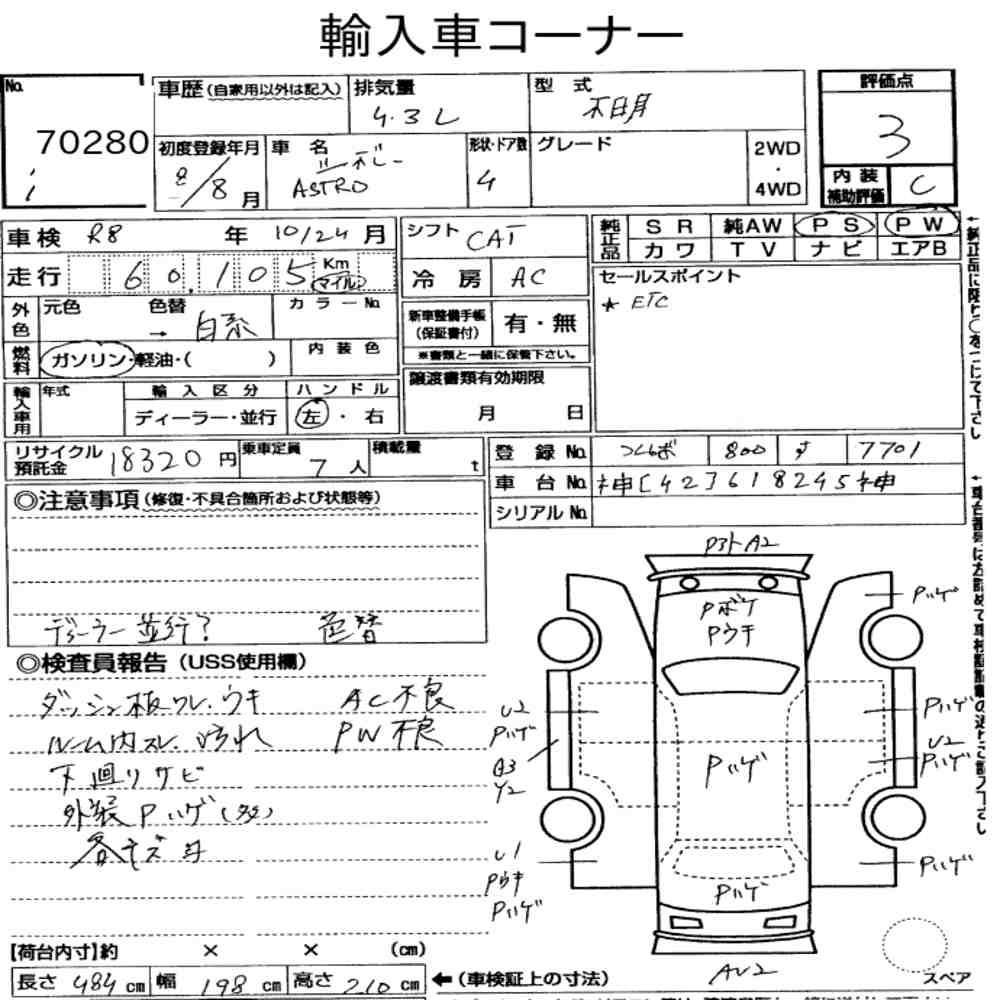 輸入車コーナー
No. 70280
車歴 (自家用以外は記入) 排気量 4.3L 型式 不明
評価点 3
初度登録年月 8/8月 車名 シボレー ASTRO 形状・ドア数 4 グレード 2WD・4WD
内装補助評価 C
車検 R8年 10/24月
走行 60,105 Km マイル
シフト CAT
冷房 AC
純正品 SR 純AW PS PW
カワ TV ナビ エアB
セールスポイント
★ ETC
外色 元色 色替 → 白系 カラーNo.
燃料 ガソリン・軽油・( ) 内装色
新車整備手帳(保証書付) 有・無
※書類と一緒に保管下さい。
輸入車用 年式 輸入区分 ハンドル
ディーラー・並行 左・右
譲渡書類有効期限
月 日
リサイクル預託金 18320円 乗車定員 7人 積載量 t
登録No. つくば 800 す 7701
車台No. 神[42]618245神
シリアルNo.
◎注意事項(修復・不具合箇所および状態等)
ディーラー並行? 色替
◎検査員報告(USS使用欄)
ダッシュ板ワレ、ウキ AC不良
ルーム内スレ、汚れ PW不良
下廻りサビ
外装Pハゲ(多)
各キズ
P3ト A2
Pボケ
Pウキ
Pハゲ
U2
Pハゲ
A3
Y2
U1
Pウキ
Pハゲ
Pハゲ
Pハゲ
Pハゲ
U2
Pハゲ
Pハゲ
AU2
スペア
【荷台内寸】約 × × (cm)
長さ 484 cm 幅 198 cm 高さ 210 cm ←(車検証上の寸法)